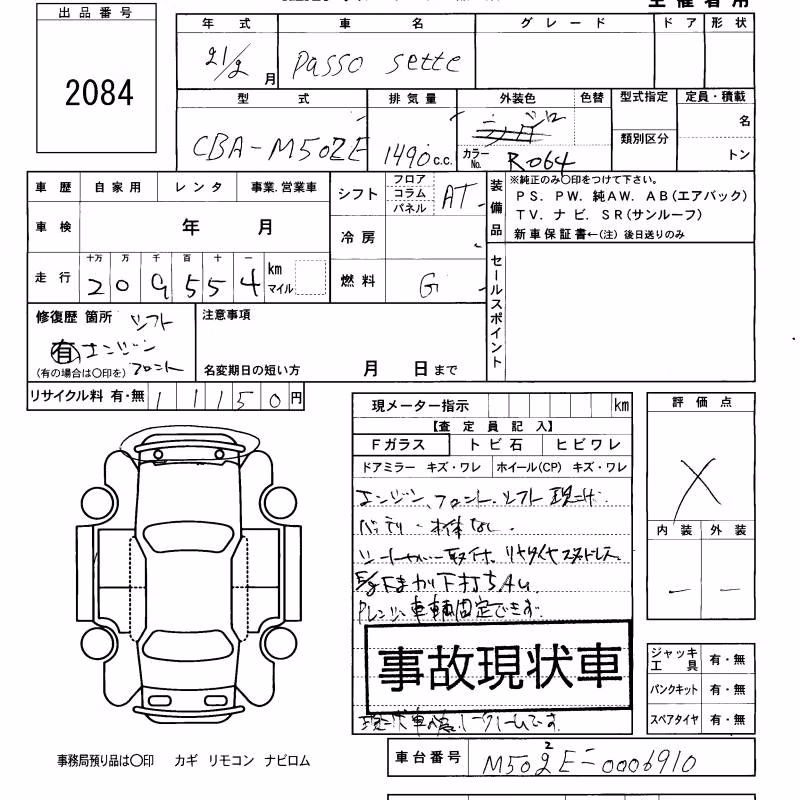 出品番号
2084
年式 車名 グレード ドア 形状
21/2 月 Passo sette
型式 排気量 外装色 色替 型式指定 定員・積載
名
CBA-M502E 1490c.c. カラーNo. R064 類別区分
トン
車歴 自家用 レンタ 事業.営業車
シフト フロア コラム パネル AT
装備品 ※純正のみ〇印をつけて下さい。
PS. PW. 純AW. AB(エアバック)
TV. ナビ. SR(サンルーフ)
新車保証書←(注)後日送りのみ
車検 年 月
冷房
十万 万 千 百 十 一
走行 209554 km マイル
燃料 G
セールスポイント
修復歴 箇所 シフト
有 エンジン
(有の場合は〇印を) フロント
注意事項
名変期日の短い方 月 日まで
リサイクル料 有・無 11150円
現メーター指示 km
【査定員記入】
Fガラス トビ石 ヒビワレ
ドアミラー キズ・ワレ ホイール(CP) キズ・ワレ
エンジン、フロント、シフト
バッテリー 本体なし.
車輌固定できず.
事故現状車
評価点
X
内装 外装
- -
ジャッキ工具 有・無
パンクキット 有・無
スペアタイヤ 有・無
事務局預り品は〇印 カギ リモコン ナビロム
車台番号 M502E-0006910